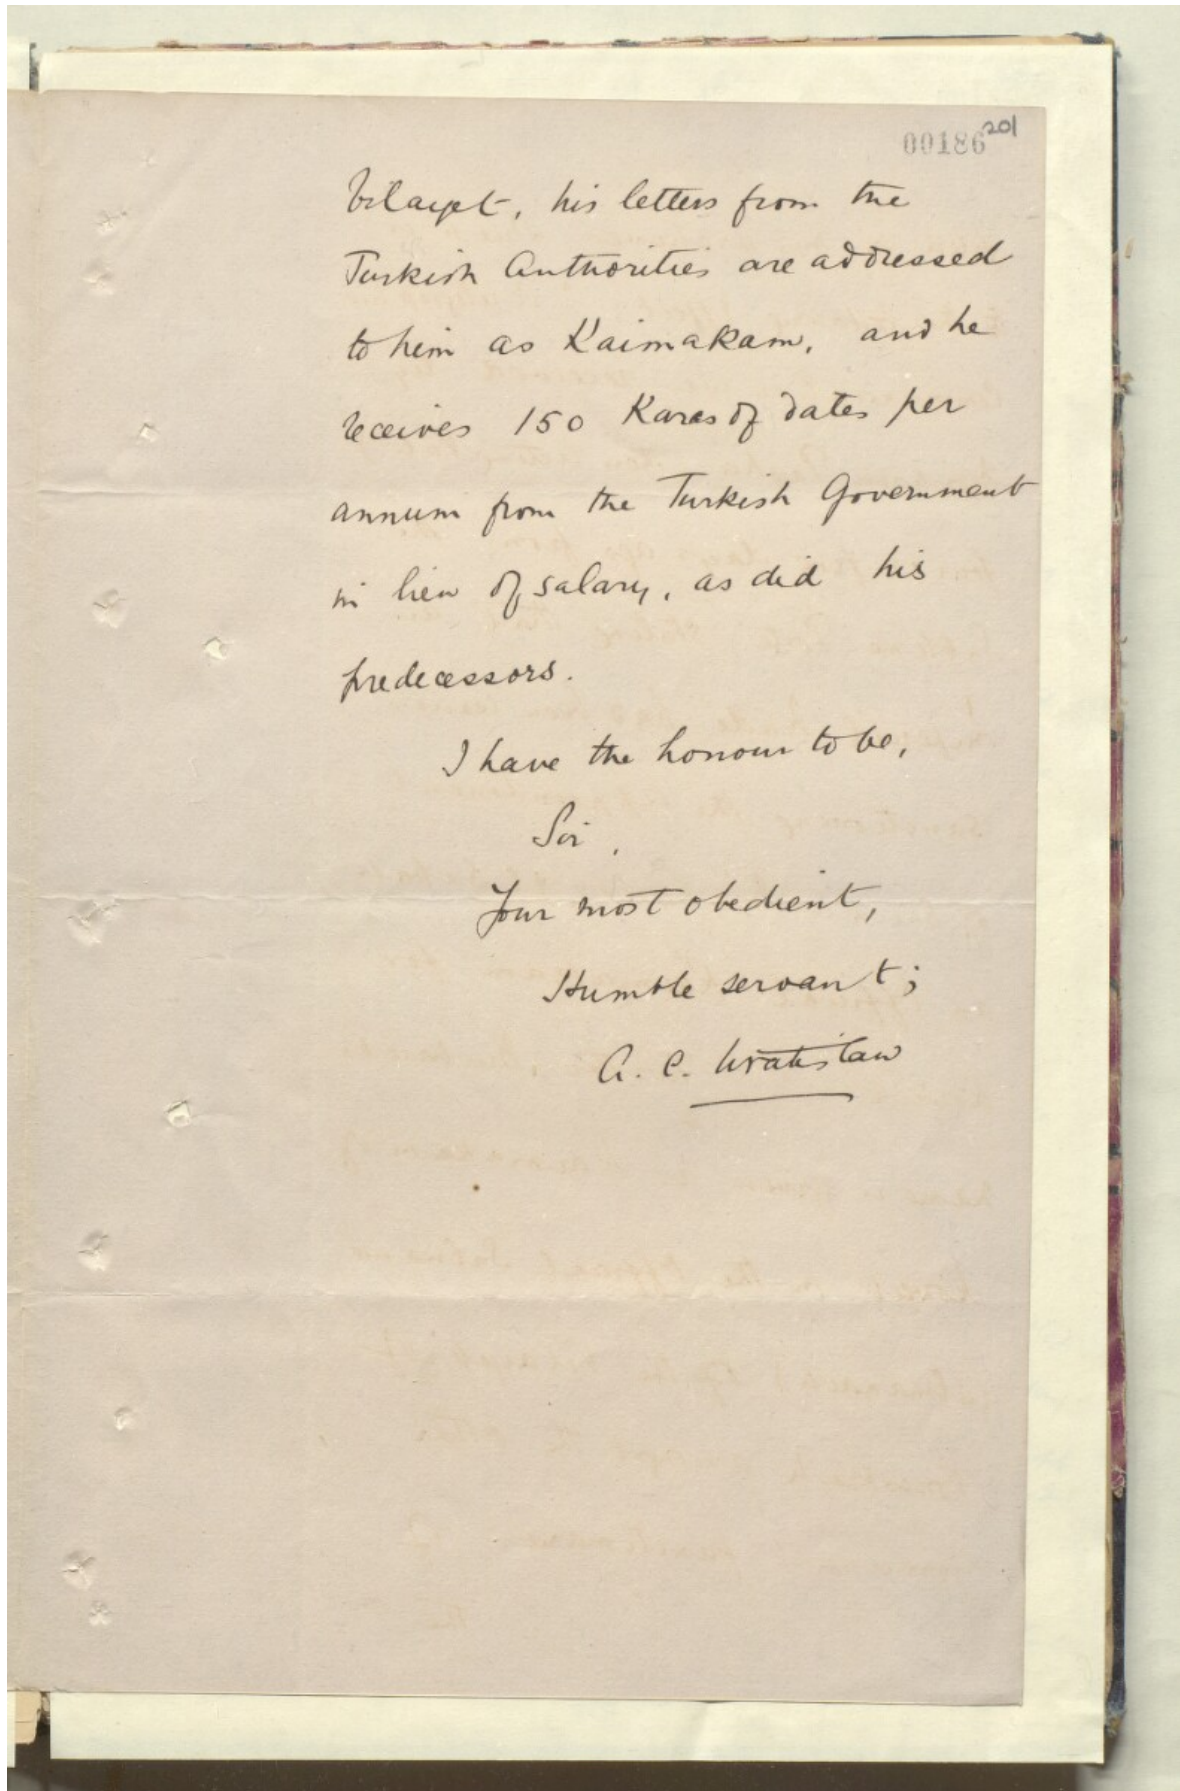 201
00186
Vilayet, his letters from the
Turkish Authorities are addressed
to him as Kaimakam, and he
receives 150 Karas of dates per
annum from the Turkish Government
in lieu of salary, as did his
predecessors.
I have the honour to be,
Sir,
Your most obedient,
Humble servant;
A. C. Wratislaw